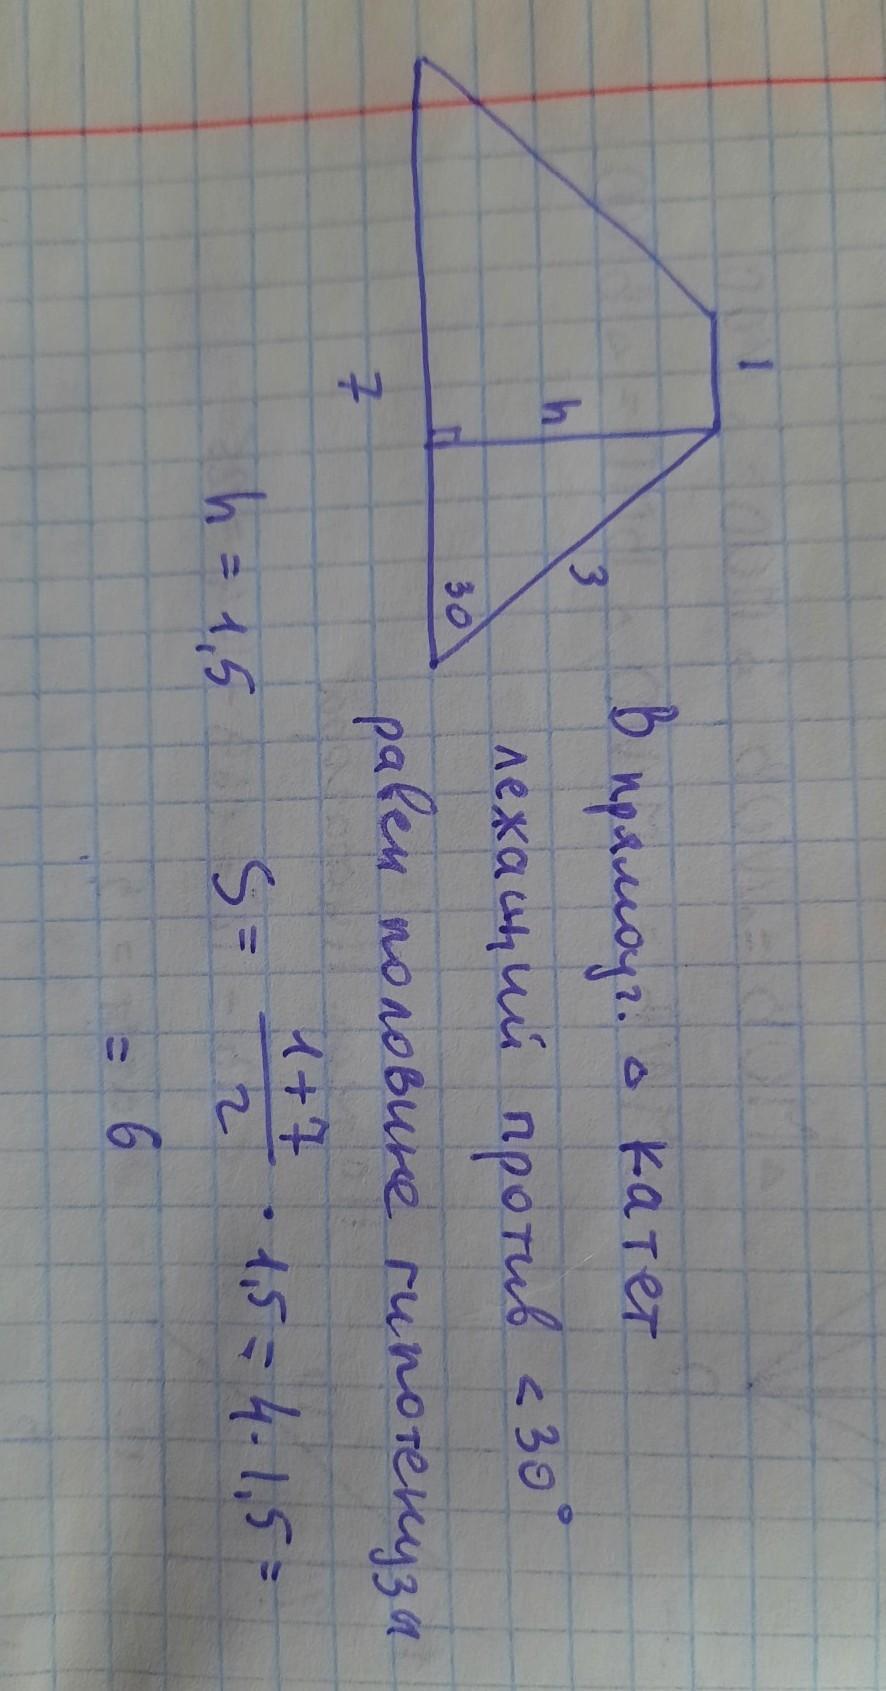 1
h
3
30
7
В прямоуг. △ катет
лежащий против <30°
равен половине гипотенузы
h = 1,5
S = (1+7)/2 · 1,5 = 4 · 1,5 =
= 6